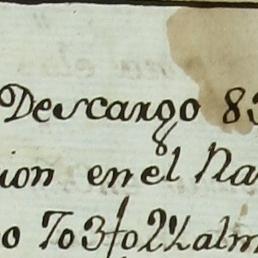 Descargo 83
ion en el Na
o 703fo 2½ alm